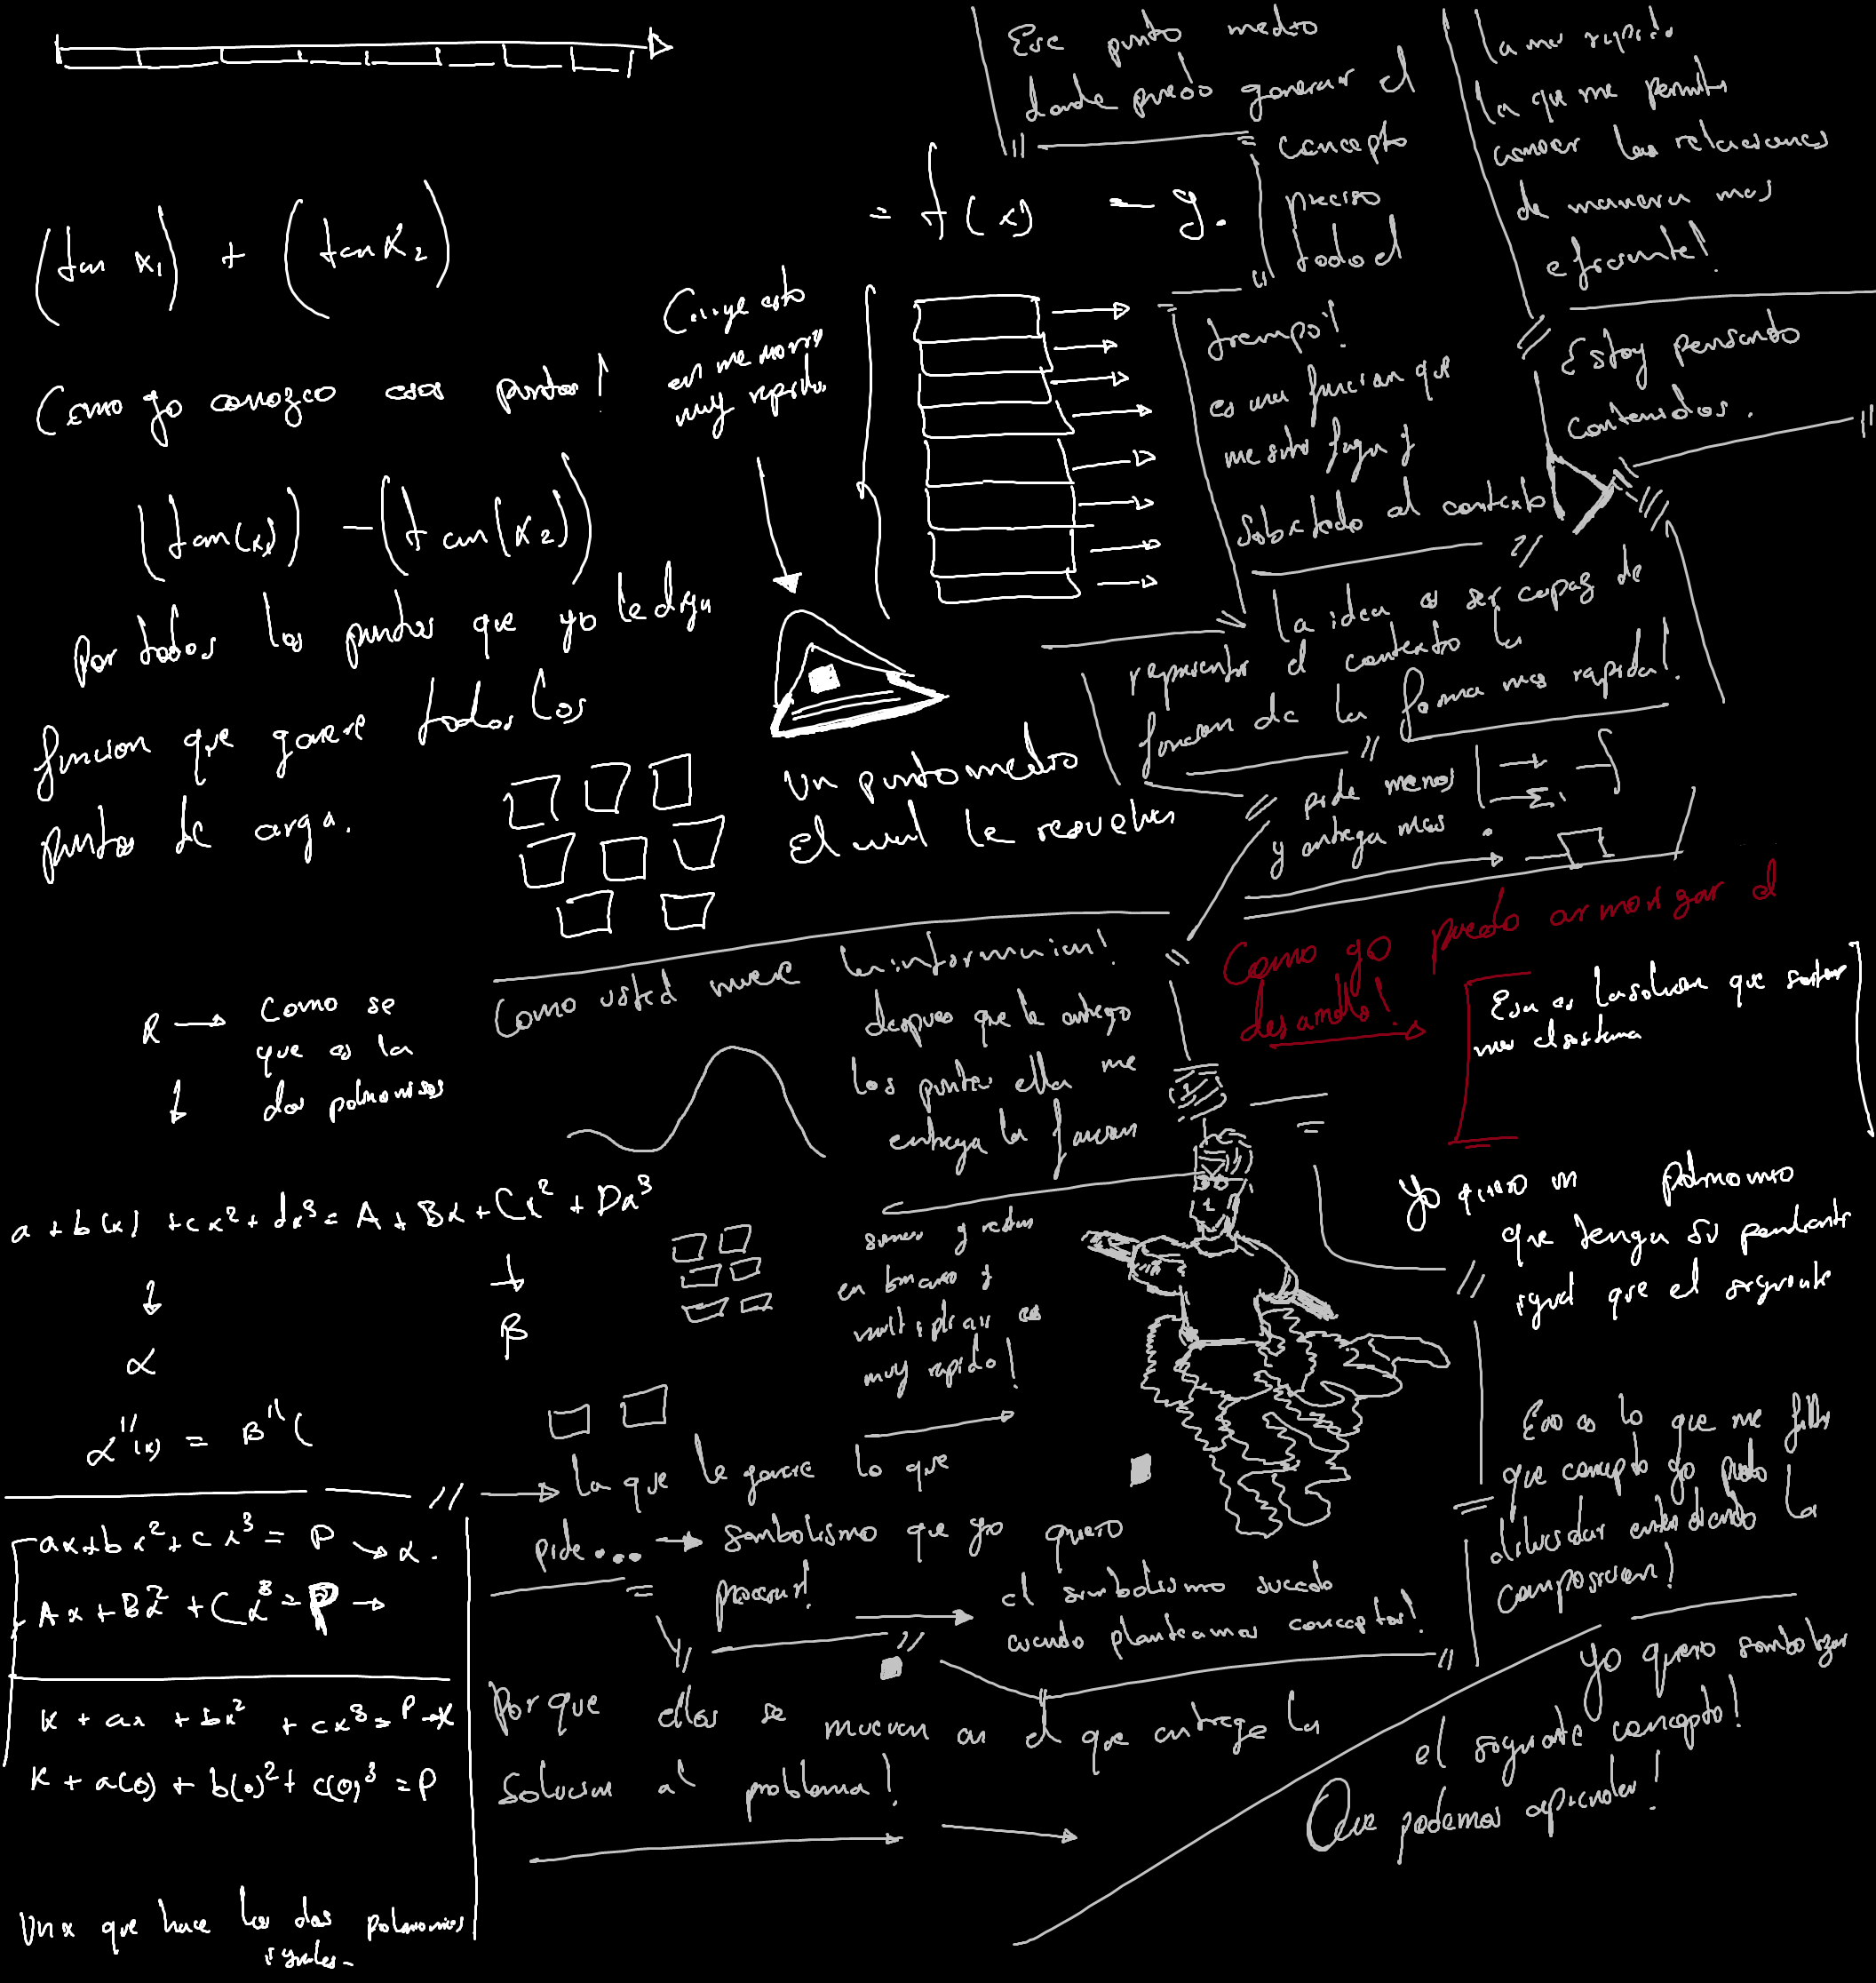 Ese punto medio
donde puedo generar el
concepto
preciso
todo el
tiempo!
es una funcion que
y
sobretodo al contexto
la mas rapida
la que me permita
conocer las relaciones
de manera mas
eficiente!
Estoy pensando
contenidos.
(tan x₁) + (tan x₂)
= f(x) = y.
Como yo conozco esos puntos!
esto
en memoria
muy rapida
(tan(x₁)) - (tan(x₂))
Por todos los puntos que yo le diga
funcion que genere todos los
puntos de carga.
Un punto medio
El cual le resuelva
La idea es ser capaz de
representar el contexto la
funcion de la forma mas rapida!
pide menos
y entrega mas
Como yo puedo armonizar el
desarrollo!
Esa es la solucion que
el sistema
Como usted mueve la informacion!
despues que le entrego
los puntos ella me
entrega la funcion
R → Como se
que es la
dos polinomios
a + b(x) + cx² + dx³ = A + Bx + Cx² + Dx³
α
β
α''(x) = B''(
sumar y restar
en binario y
multiplicar es
muy rapido!
Yo quiero un polinomio
que tenga su pendiente
igual que el siguiente
Eso es lo que me falta
que concepto yo puedo
dilucidar entendiendo la
composicion!
la que le genere lo que
pide... → simbolismo que yo quiero
procesar!
el simbolismo sucede
cuando planteamos conceptos!
ax+bx²+cx³ = P → α.
Ax+Bx²+Cx³ = P →
K + ax + bx² + cx³ = P → x
K + a(0) + b(0)² + c(0)³ = P
Un x que hace los dos polinomios
iguales.
Porque ellos se mueven en el que entrega la
solucion al problema!
Yo quiero simbolizar
el siguiente concepto!
Que podemos aprender!